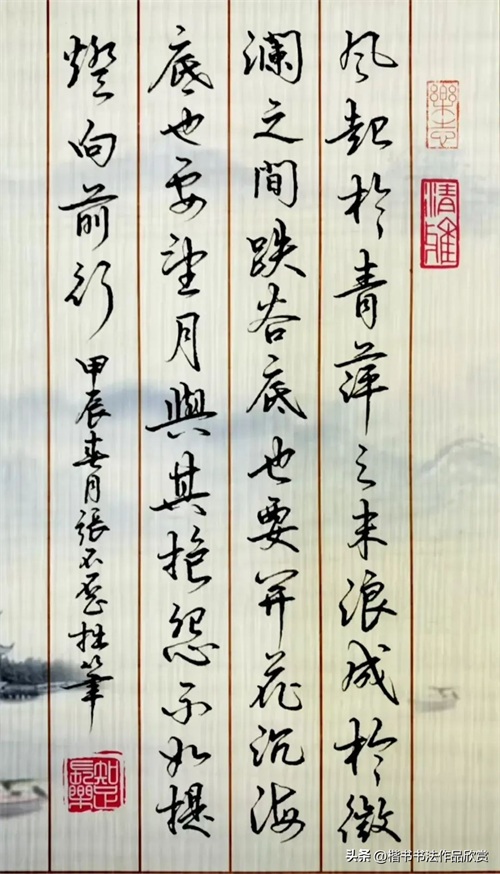 清雅
風起於青萍之末浪成於微
瀾之間跌谷底也要开花沉海
底也要望月與其抱怨不如提
燈向前行
甲辰春月張不拙筆
知足長樂
头条 @楷书书法作品欣赏